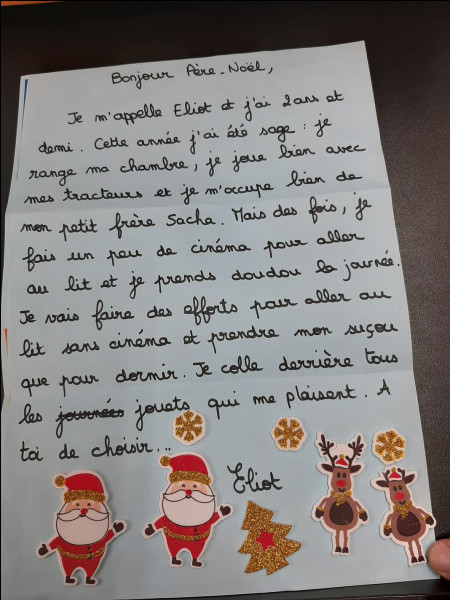 Bonjour Père-Noël,
Je m'appelle Eliot et j'ai 2 ans et
demi. Cette année j'ai été sage : je
range ma chambre, je joue bien avec
mes tracteurs et je m'occupe bien de
mon petit frère Sacha. Mais des fois, je
fais un peu de cinéma pour aller
au lit et je prends doudou la journée.
Je vais faire des efforts pour aller au
lit sans cinéma et prendre mon suçou
que pour dormir. Je colle derrière tous
les journées jouets qui me plaisent. A
toi de choisir...
Eliot